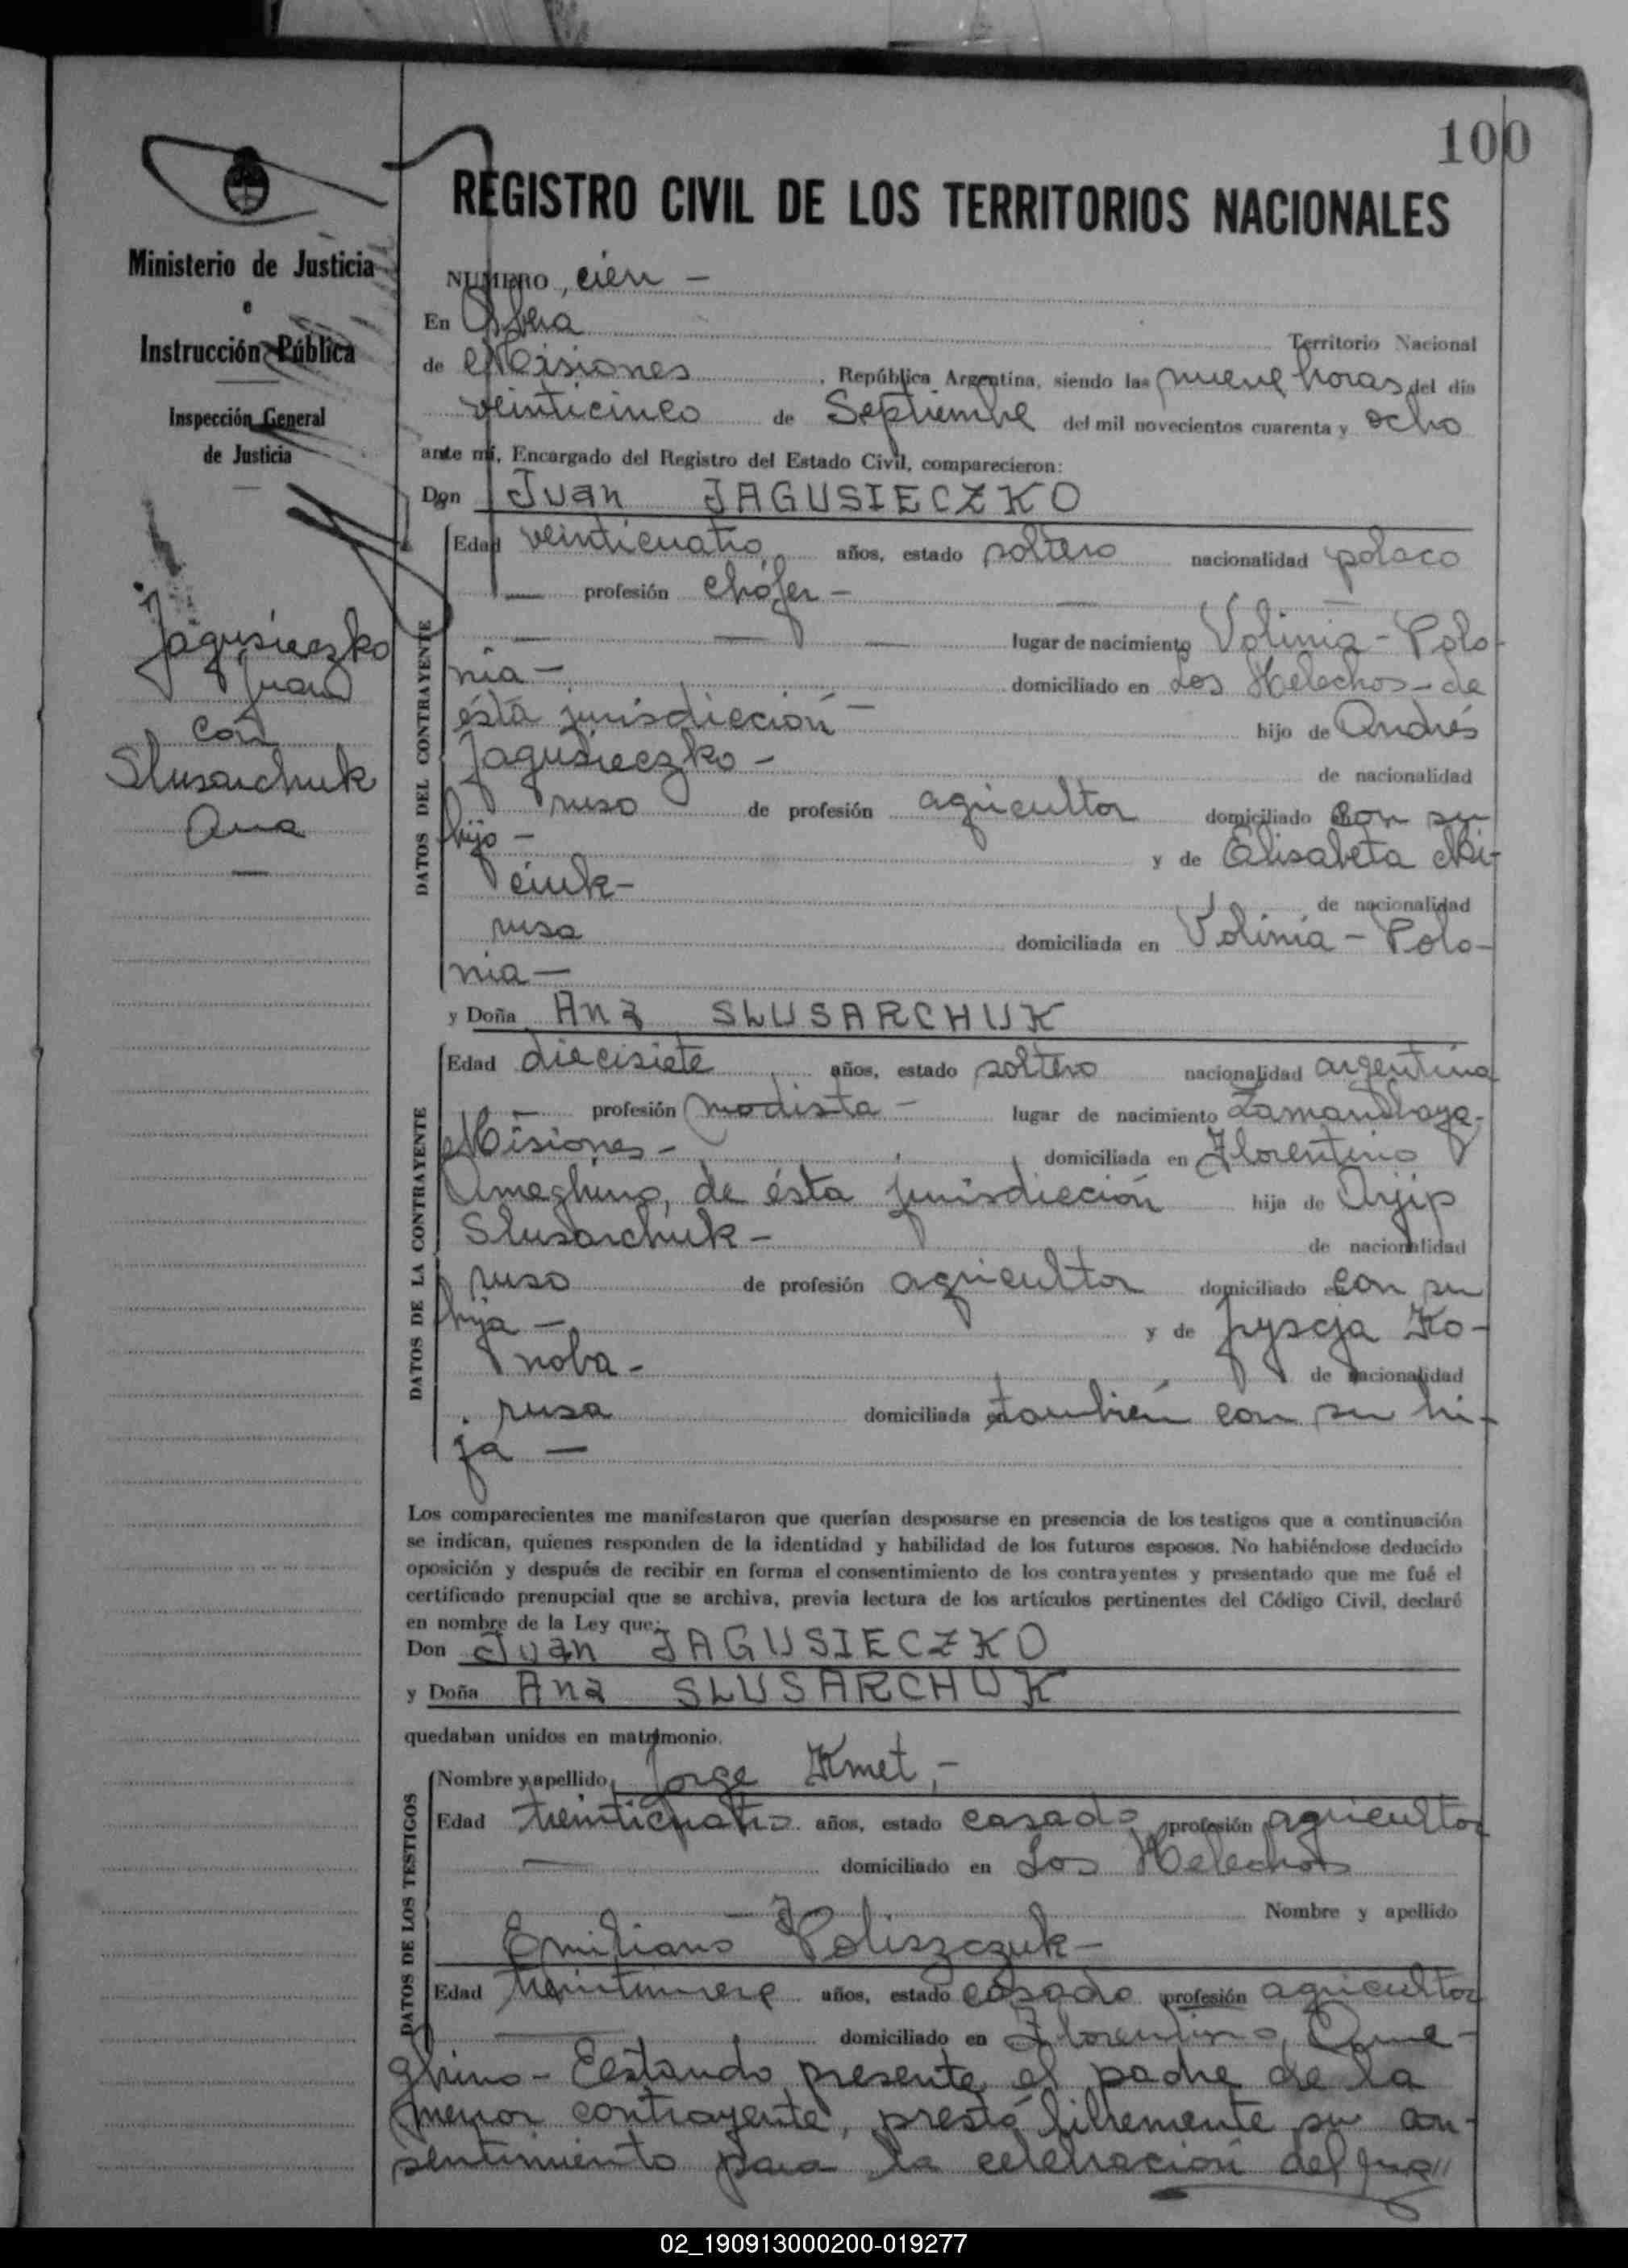 100
REGISTRO CIVIL DE LOS TERRITORIOS NACIONALES
Ministerio de Justicia
e
Instrucción Pública
Inspección General
de Justicia
Jagusieczko
Juan
con
Slusarchuk
Ana
NUMERO, cien -
En Obera Territorio Nacional
de Misiones, República Argentina, siendo las nueve horas del día
veinticinco de Septiembre del mil novecientos cuarenta y ocho
ante mí, Encargado del Registro del Estado Civil, comparecieron:
Don Juan JAGUSIECZKO
DATOS DEL CONTRAYENTE
Edad veinticuatro años, estado soltero nacionalidad polaco
— profesión chófer -
lugar de nacimiento Volinia - Polo-
nia - domiciliado en Los Helechos - de
ésta jurisdicción - hijo de Andrés
Jagusieczko - de nacionalidad
ruso de profesión agricultor domiciliado con su
hijo - y de Elisabeta
de nacionalidad
rusa domiciliada en Volinia - Polo-
nia -
y Doña Ana SLUSARCHUK
DATOS DE LA CONTRAYENTE
Edad diecisiete años, estado soltero nacionalidad argentina
— profesión modista - lugar de nacimiento
Misiones - domiciliada en Florentino
Ameghino, de ésta jurisdicción hija de
Slusarchuk - de nacionalidad
ruso de profesión agricultor domiciliado con su
hija - y de Ko-
noba - de nacionalidad
rusa domiciliada también con su hi-
ja -
Los comparecientes me manifestaron que querían desposarse en presencia de los testigos que a continuación
se indican, quienes responden de la identidad y habilidad de los futuros esposos. No habiéndose deducido
oposición y después de recibir en forma el consentimiento de los contrayentes y presentado que me fué el
certificado prenupcial que se archiva, previa lectura de los artículos pertinentes del Código Civil, declaré
en nombre de la Ley que:
Don Juan JAGUSIECZKO
y Doña Ana SLUSARCHUK
quedaban unidos en matrimonio.
DATOS DE LOS TESTIGOS
Nombre y apellido, Jorge Kmet, -
Edad treinticuatro años, estado casado profesión agricultor
— domiciliado en Los Helechos
Nombre y apellido
Emiliano Poliszczuk -
Edad treintinueve años, estado casado profesión agricultor
— domiciliado en Florentino Ame-
ghino - Eestando presente el padre de la
menor contrayente, prestó libremente su con-
sentimiento para la celebración del
02_190913000200-019277